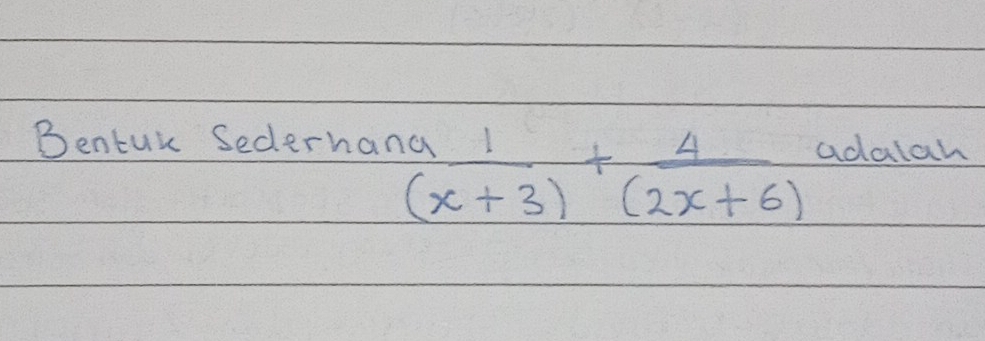 Bentuk Sederhana \frac{1}{(x+3)} + \frac{4}{(2x+6)} adalah